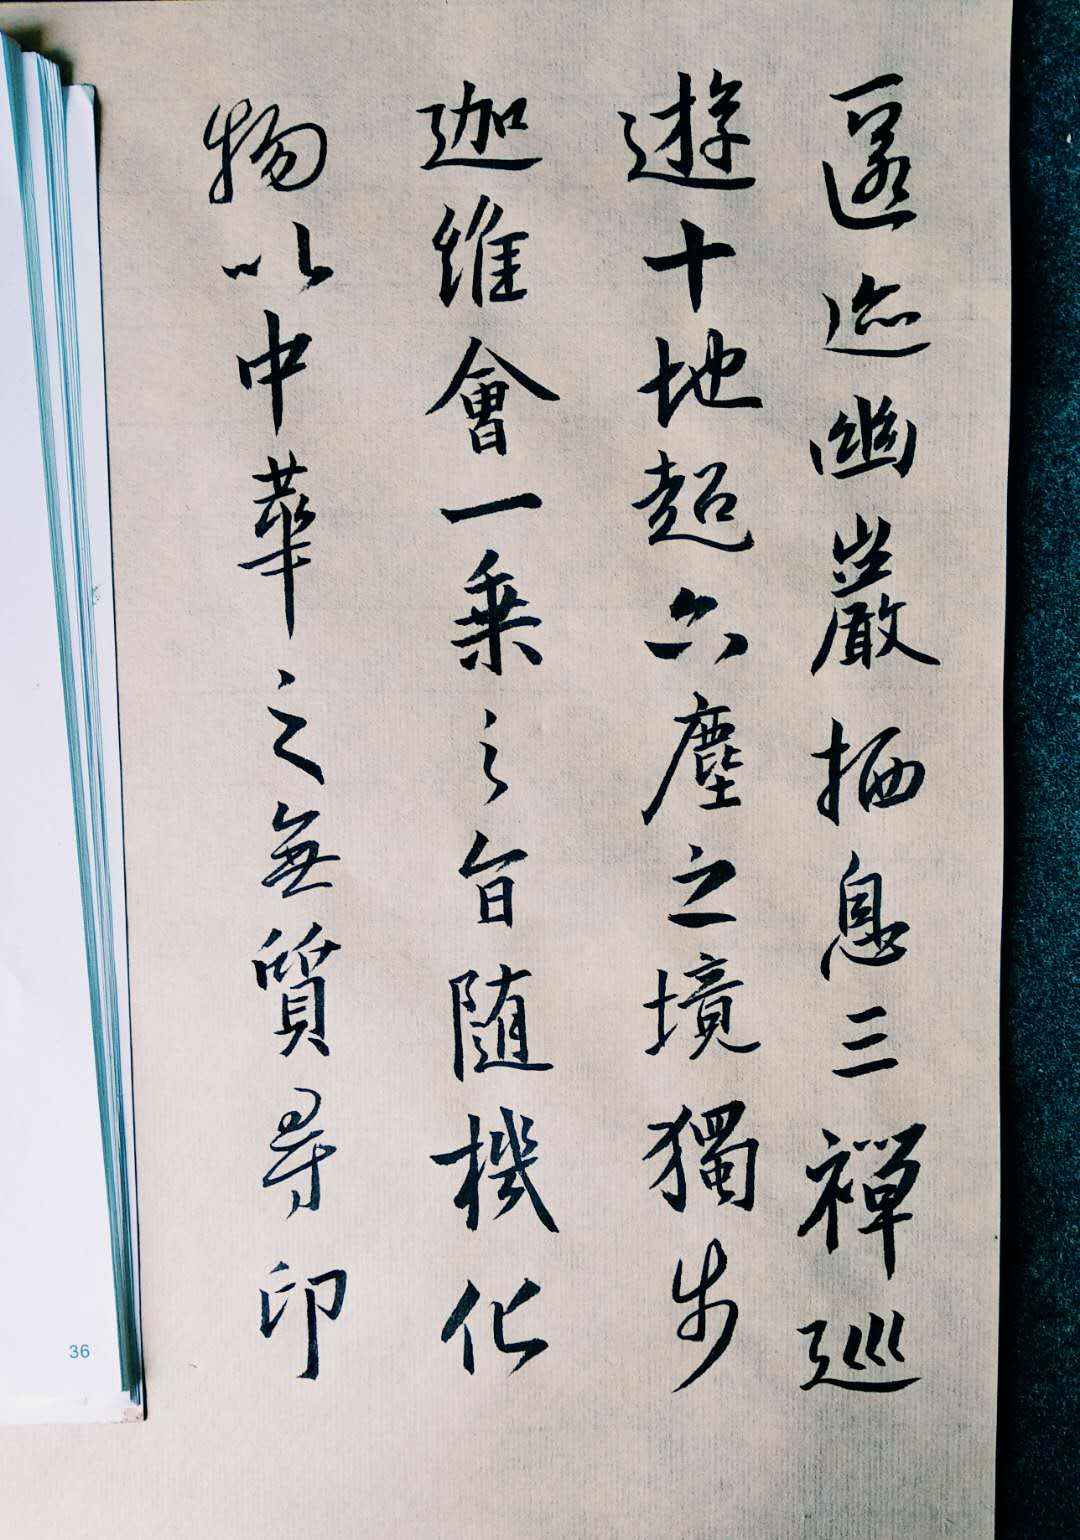 匿迹幽巖栖息三禪巡
遊十地超六塵之境獨步
迦維會一乗之旨随機化
物以中華之無質尋印
36